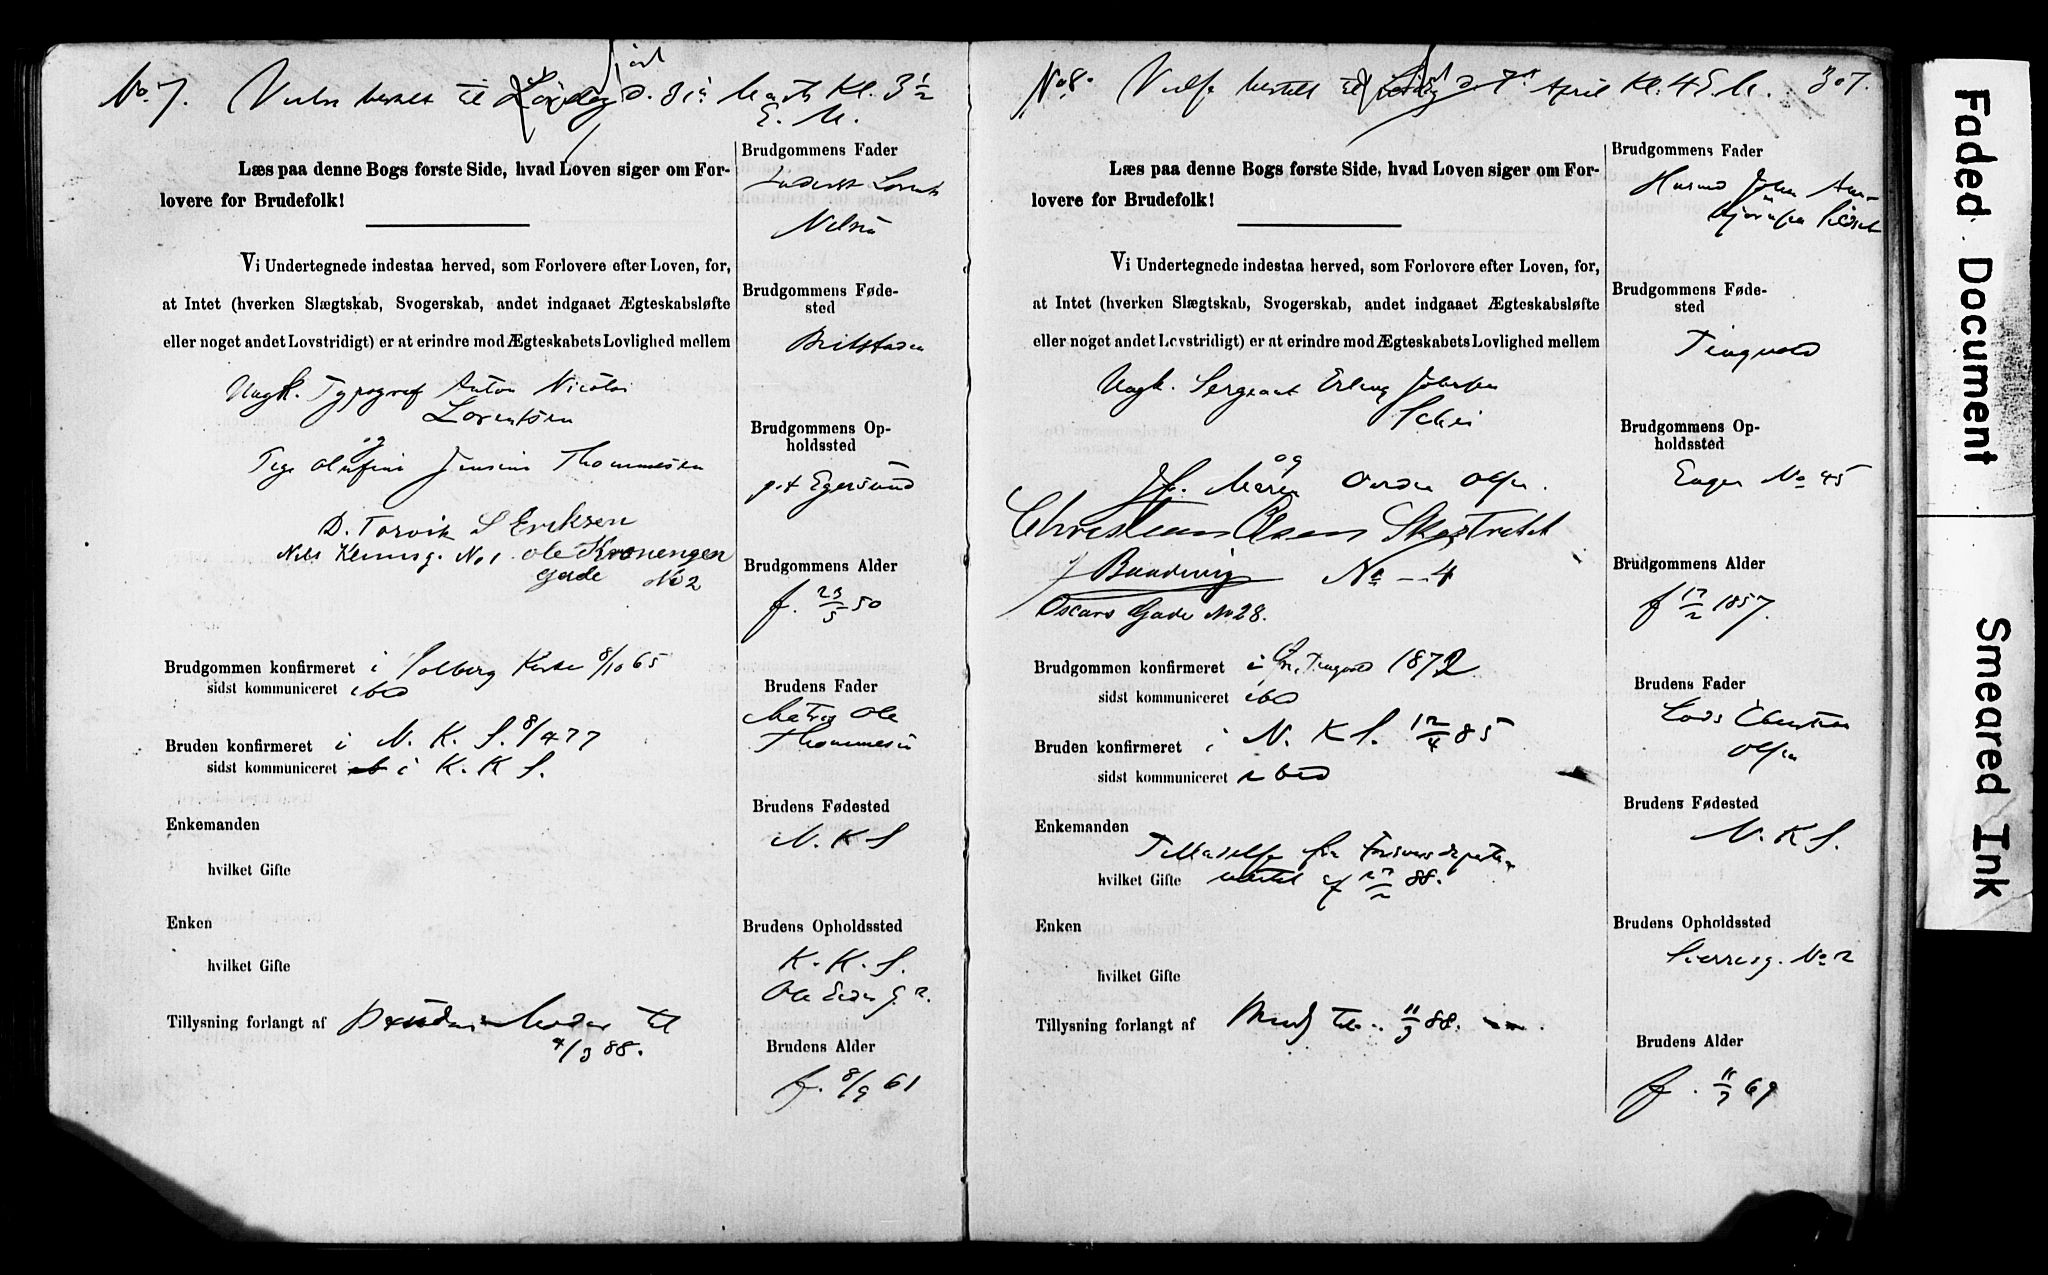 No 7. Vielse bestilt til Lördag d. 31te Marts Kl. 3 1/2
E. M.
Læs paa denne Bogs første Side, hvad Loven siger om For-
lovere for Brudefolk!
Vi Undertegnede indestaa herved, som Forlovere efter Loven, for,
at Intet (hverken Slægtskab, Svogerskab, andet indgaaet Ægteskabsløfte
eller noget andet Lovstridigt) er at erindre mod Ægteskabets Lovlighed mellem
Ungk. Typograf Anton Nicolai
Lorentsen
og
Pige Olufine Jensine Thommesen
D. Torvik S Eriksen
Nels Klemsg. No 1. Ole Kronengen
gade No 2
Brudgommen konfirmeret i Solberg Kirke 8/10 65
sidst kommuniceret ibid
Bruden konfirmeret i N. K. S. 8/4 77
sidst kommuniceret i K. K. S.
Enkemanden
hvilket Gifte
Enken
hvilket Gifte
Tillysning forlangt af Brudens Moder til
4/3 88.
Brudgommens Fader
Lorents
Nelsen
Brudgommens Føde-
sted
Brudgommens Op-
holdssted
p.t Egersund
Brudgommens Alder
f. 23/5 50
Brudens Fader
Matros Ole
Thommesen
Brudens Fødested
N. K. S
Brudens Opholdssted
K. K. S.
Ole G. 2.
Brudens Alder
f. 8/9 61
No 8. Vielse bestilt til d. 7de April Kl. 4 E. M. 307.
Læs paa denne Bogs første Side, hvad Loven siger om For-
lovere for Brudefolk!
Vi Undertegnede indestaa herved, som Forlovere efter Loven, for,
at Intet (hverken Slægtskab, Svogerskab, andet indgaaet Ægteskabsløfte
eller noget andet Lovstridigt) er at erindre mod Ægteskabets Lovlighed mellem
Ungk. Sergeant Erling Johnsen
Schei
og
Jfr. Maren Olsen.
Christian Olsen Skostredet
J Baadsvig No 4
Oscars Gade No 28.
Brudgommen konfirmeret i Tingvold 1872
sidst kommuniceret ibid
Bruden konfirmeret i N. K S. 12/4 85
sidst kommuniceret ibid
Enkemanden
Tilladelse fra Forsvarsdeparte-
hvilket Gifte mentet af 27/2 88.
Enken
hvilket Gifte
Tillysning forlangt af til 11/3 88.
Brudgommens Fader
Husmd John
Brudgommens Føde-
sted
Tingvold
Brudgommens Op-
holdssted
Engen No 45
Brudgommens Alder
f 17/2 1857.
Brudens Fader
Lods
Olsen
Brudens Fødested
N. K S.
Brudens Opholdssted
No 2
Brudens Alder
f. 11/7 69
Faded Document
Smeared Ink